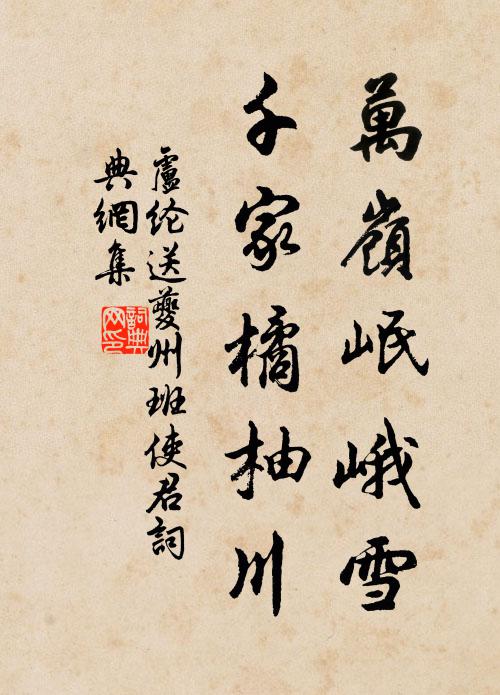 萬嶺岷峨雪
千家橘柚川
盧纶送夔州班使君詞
典網集
詞典
网印